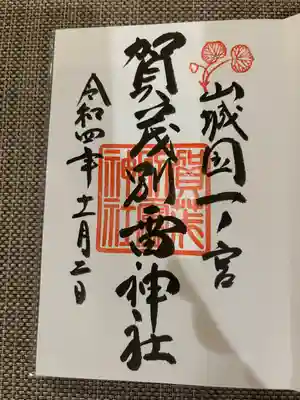 山城国一ノ宮
賀茂別雷神社
賀茂別雷神社
令和四年十二月二日